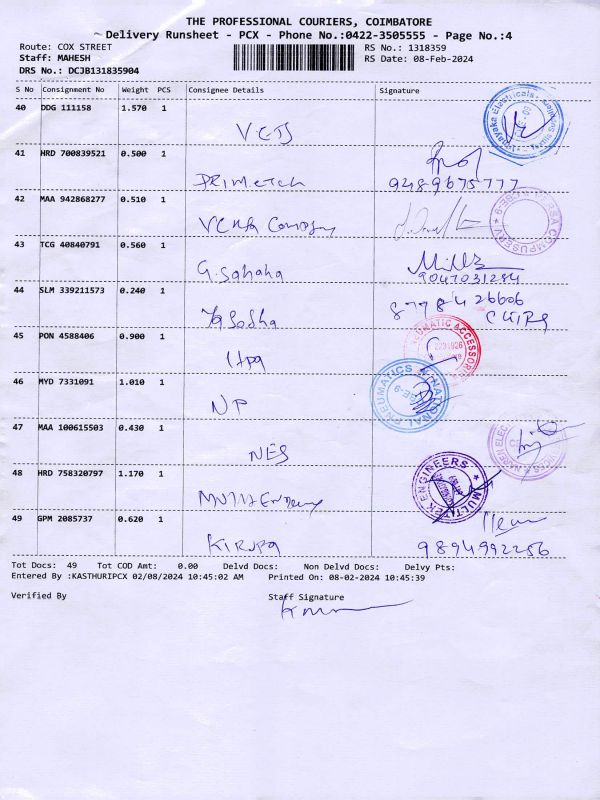 THE PROFESSIONAL COURIERS, COIMBATORE
~ Delivery Runsheet - PCX - Phone No.:0422-3505555 - Page No.:4
Route: COX STREET RS No.: 1318359
Staff: MAHESH RS Date: 08-Feb-2024
DRS No.: DCJB131835904
S No Consignment No Weight PCS Consignee Details Signature
40 DDG 111158 1.570 1
VETS
41 HRD 700839521 0.500 1
9489675777
42 MAA 942868277 0.510 1
Company
43 TCG 40840791 0.560 1
G. Sahaha
9047031284
44 SLM 339211573 0.240 1
8778426606
45 PON 4588406 0.900 1
PNEUMATIC ACCESSORIES
46 MYD 7331091 1.010 1
NP
NATIONAL PNEUMATICS
47 MAA 100615503 0.430 1
NES
48 HRD 758320797 1.170 1
MULTITEK ENGINEERS
49 GPM 2085737 0.620 1
KIRUPA
9894992256
Tot Docs: 49 Tot COD Amt: 0.00 Delvd Docs: Non Delvd Docs: Delvy Pts:
Entered By :KASTHURIPCX 02/08/2024 10:45:02 AM Printed On: 08-02-2024 10:45:39
Verified By Staff Signature